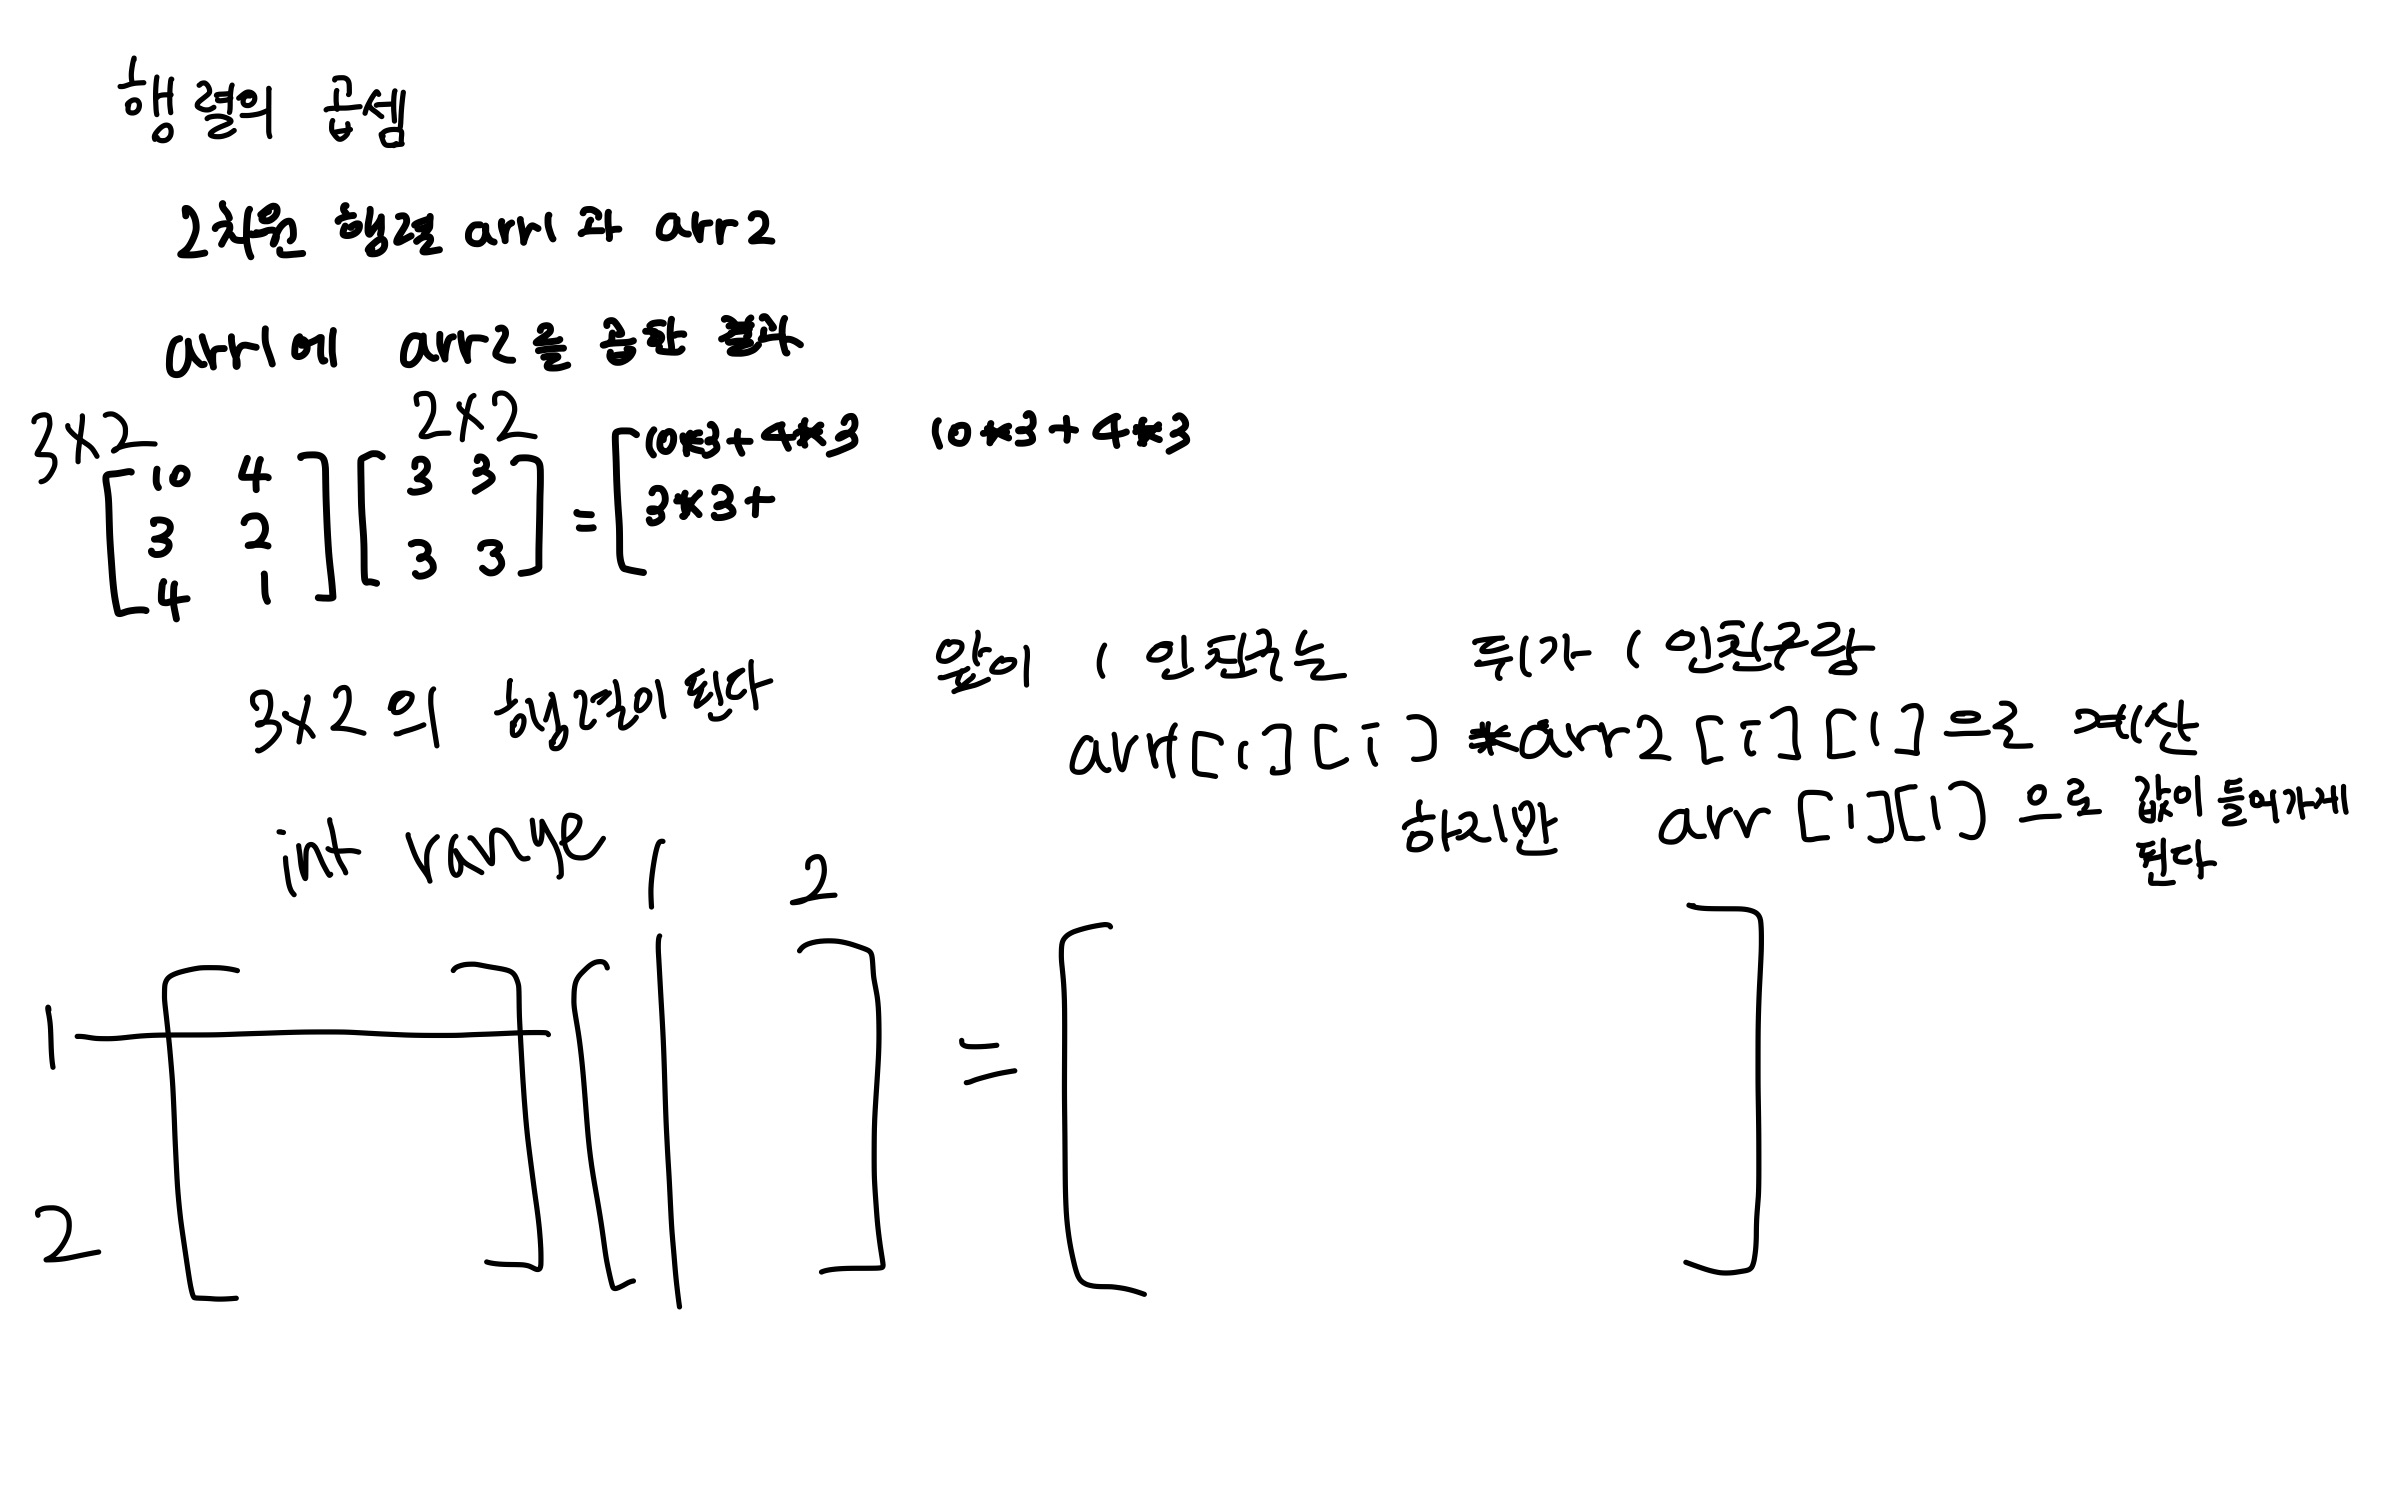 행렬의 곱셈
2차원 행렬 arr1 과 arr2
arr1에 arr2를 곱한 결과
3x2 2x2
10 4 3 3 = 10*3+4*3 10*3+4*3
3 2 3 3 3*3+
4 1
3x2 의 행렬이 된다
앞이 1 인칸은 뒤가 1 인칸끼리
arr[1][i] *arr2[i][1]으로 계산
하지만 arr[1][1]으로 값이 들어가게
된다
int range
1 2
1 =
2